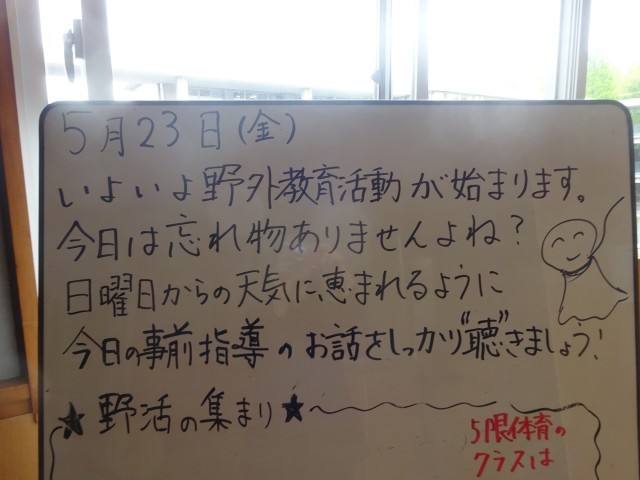 5月23日(金)
いよいよ野外教育活動が始まります。
今日は忘れ物ありませんよね?
日曜日からの天気に恵まれるように
今日の事前指導のお話をしっかり"聴"きましょう!
★野活の集まり★
5限体育の
クラスは